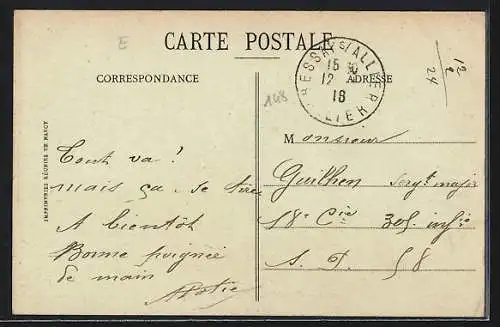 E
CARTE POSTALE
CORRESPONDANCE
ADRESSE
BESSAY S/ALLIER
15 30
12
18
ALLIER
12
24
148
IMPRIMERIES RÉUNIES DE NANCY
Monsieur
Guilhen Sergt major
18e Cie 305 infie
S. P. 58
Tout va !
mais ça se tire
A bientôt
Bonne poignée
de main